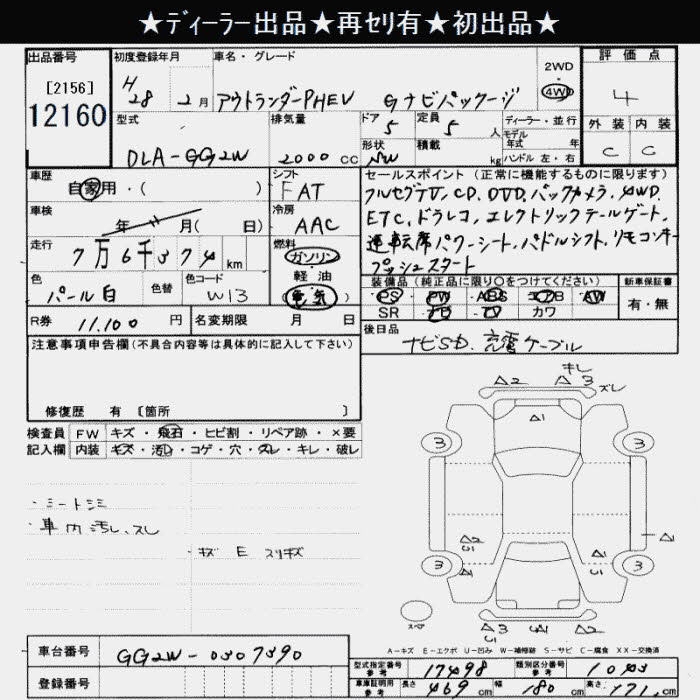 ★ディーラー出品★再セリ有★初出品★
出品番号
[2156]
12160
初度登録年月
H 28 2月
車名・グレード
アウトランダーPHEV Gナビパッケージ
2WD
4WD
評価点
4
外装 内装
C C
型式
DLA-GG2W
排気量
2000 CC
ドア 5
定員 5 人
形状 SW
積載 kg
ディーラー・並行
モデル
年式 年
ハンドル 左・右
車歴
自家用・( )
車検
年 月( 日)
走行
7万6千374 km
色
パール白
色替
色コード
W13
シフト
FAT
冷房
AAC
燃料
ガソリン
軽・油
電気
セールスポイント(正常に機能するものに限ります)
フルセグTV, CD, DVD, バックカメラ, 4WD,
ETC, ドラレコ, エレクトリックテールゲート,
運転席パワーシート, パドルシフト, リモコンキー
プッシュスタート
装備品(純正品に限り○をつけてください)
PS PW ABS エアB AW
SR ナビ TV カワ
新車保証書
有・無
R券 11,100 円
名変期限 月 日
後日品
ナビSD. 充電ケーブル
注意事項申告欄(不具合内容等は具体的に記入して下さい)
修復歴 有 [箇所 ]
検査員
記入欄
FW キズ・飛石・ヒビ割・リペア跡・×要
内装 キズ・汚れ・コゲ・穴・スレ・キレ・破レ
・シートシミ
・車内汚れ、スレ
・キズ E スリキズ
キレ
△2 △3 ズレ
△1
3 3
3 3
△1
△3 △1 △2
スペア
A-キズ E-エクボ U-凹み W-補修跡 S-サビ C-腐食 XX-交換済
車台番号
GG2W-0307390
登録番号
型式指定番号
参考
17498
類別区分番号
参考
1043
車庫証明用
参考
長さ 469 cm 幅 180 cm 高さ 171 cm